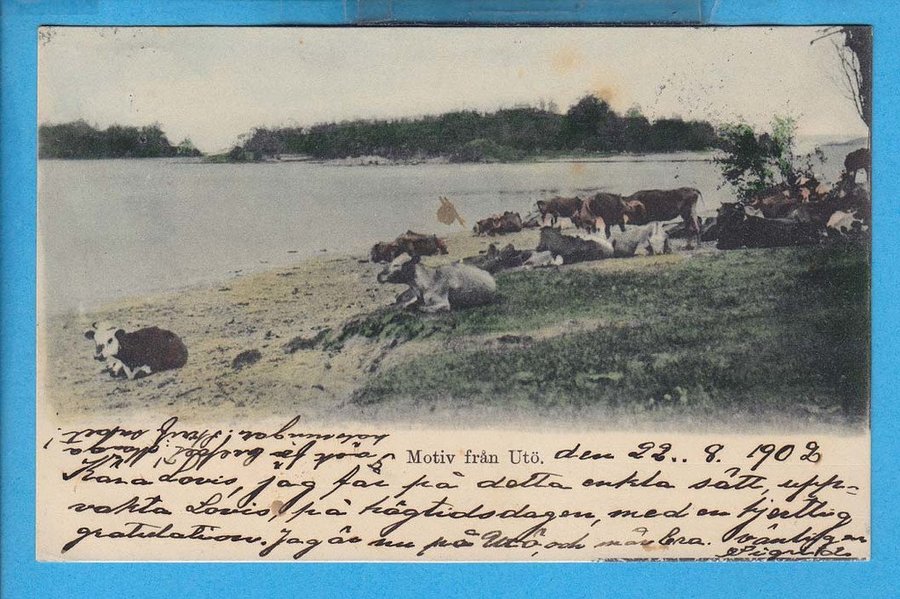 Motiv från Utö. den 22.. 8. 1902
Kära Lovis, jag får på detta enkla sätt, upp-
vakta Lovis, på högtidsdagen, med en hjertlig
gratulation. Jag är nu på Utö, och mår bra. vänligen
Signe